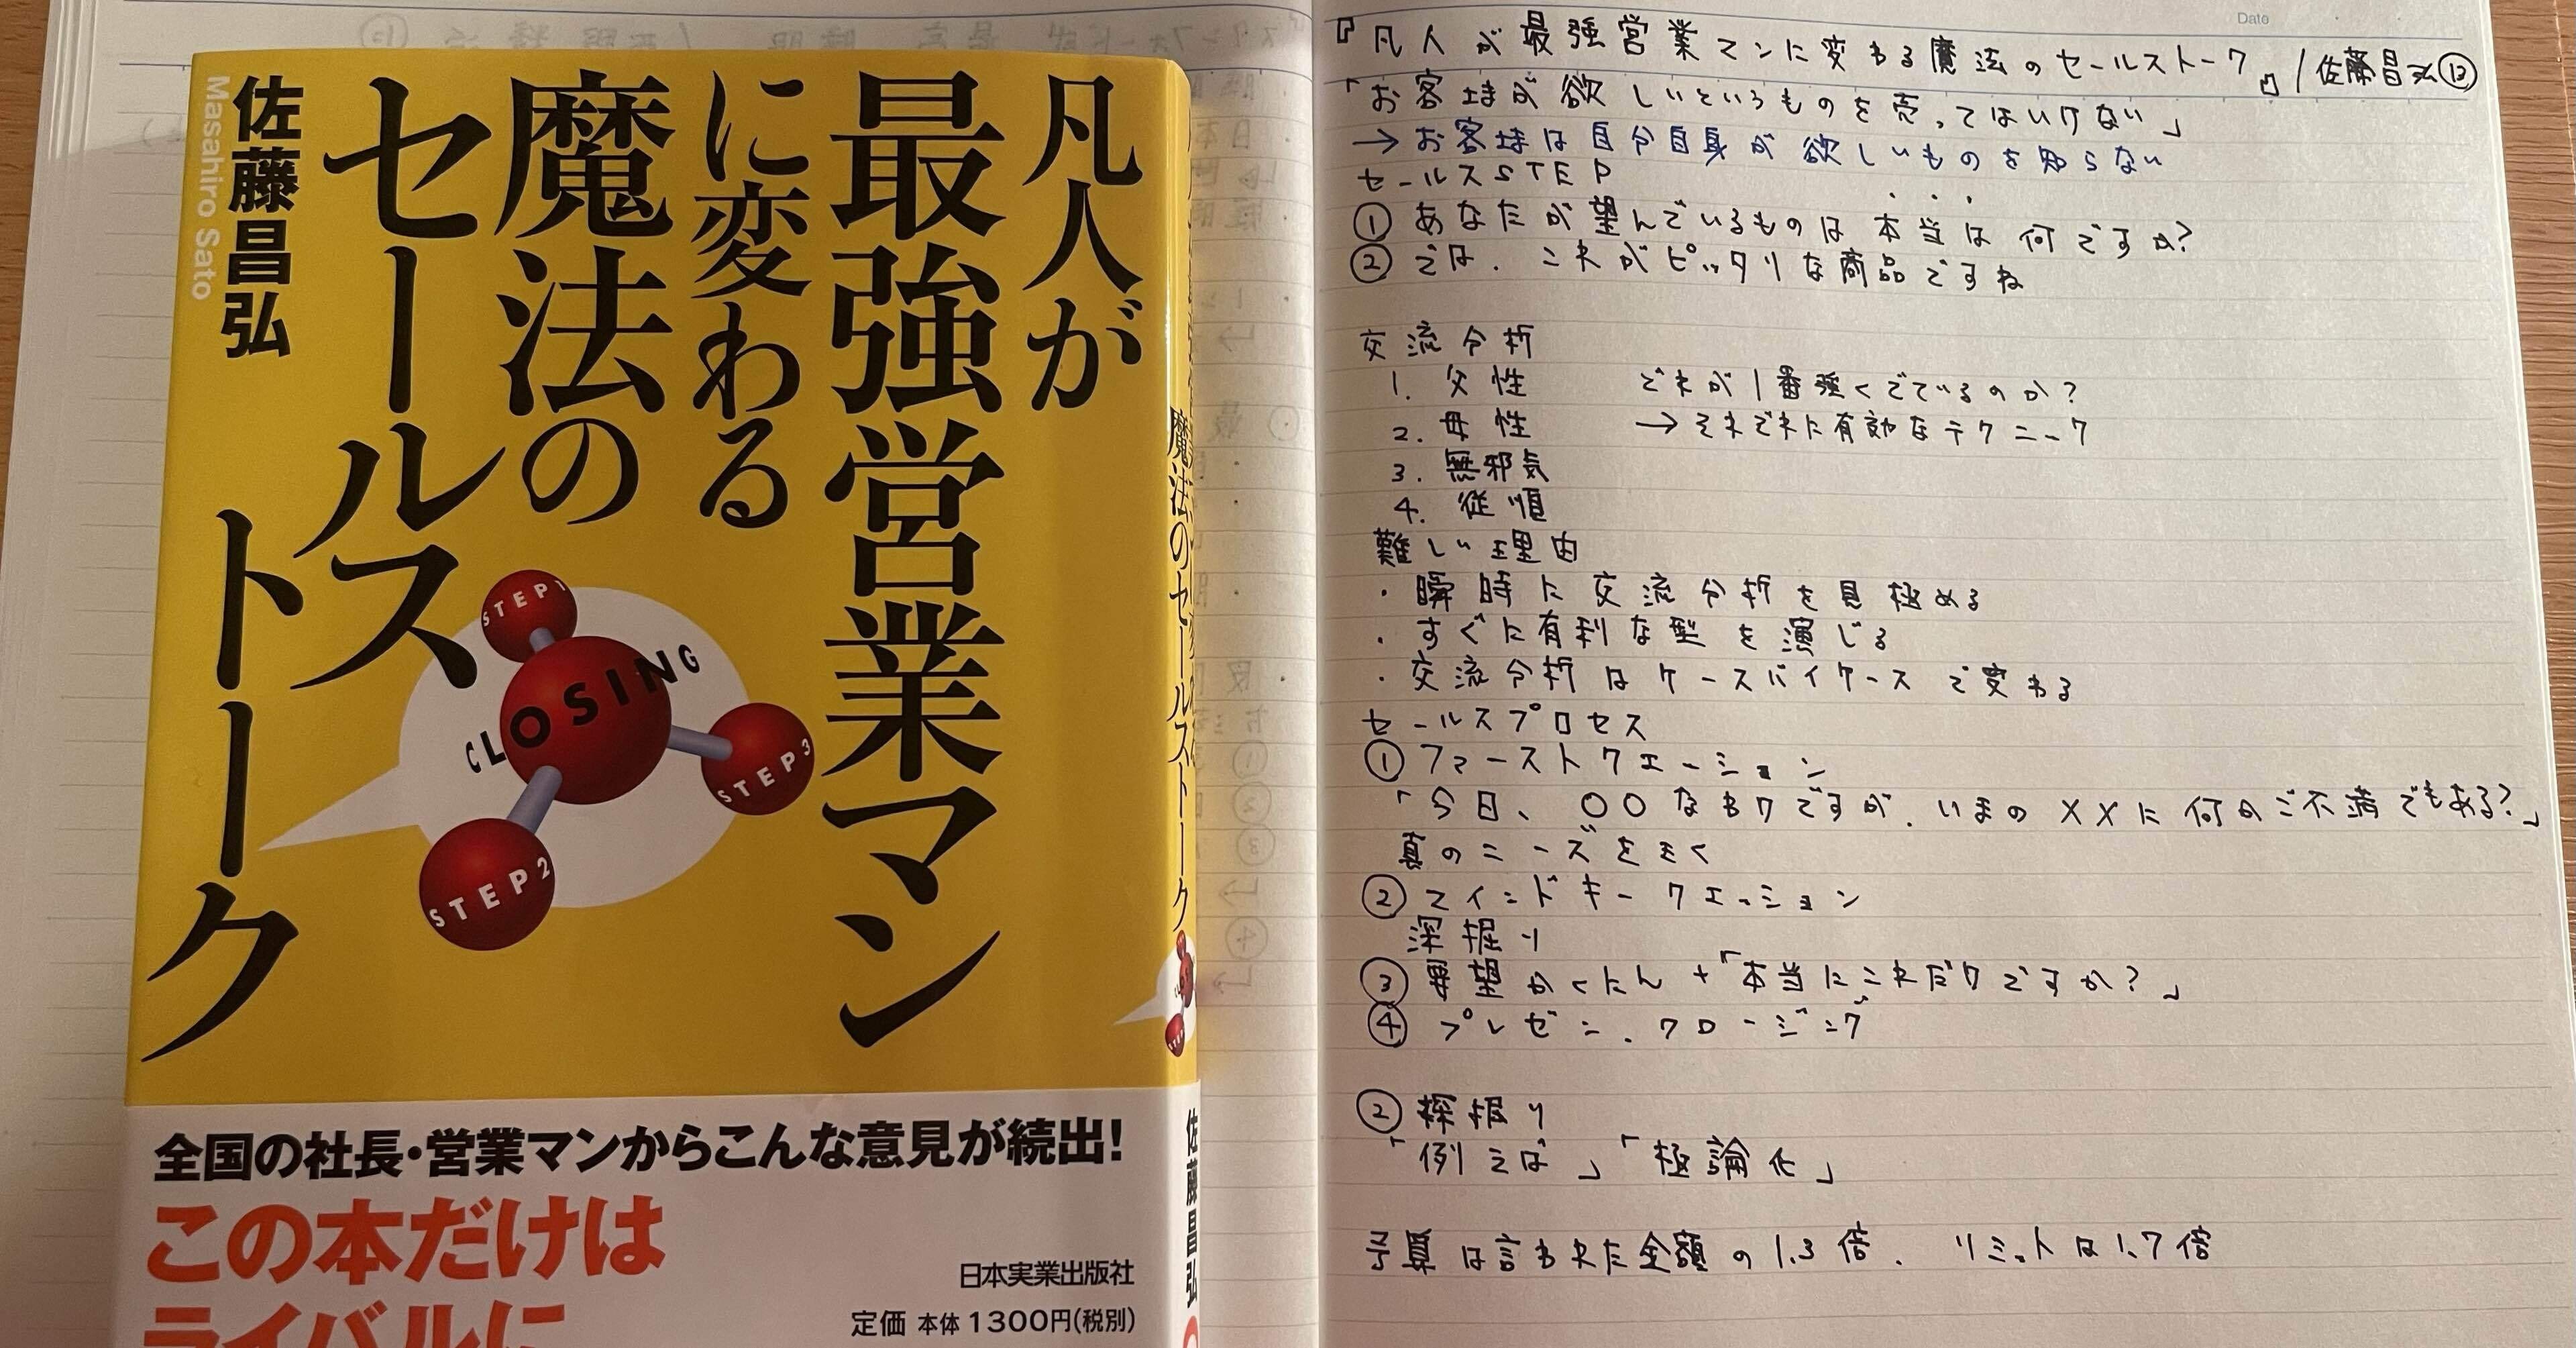 凡人が
最強営業マン
に変わる
魔法の
セールス
トーク
佐藤昌弘
Masahiro Sato
STEP1
CLOSING
STEP3
STEP2
全国の社長・営業マンからこんな意見が続出!
この本だけは
ライバルに
日本実業出版社
定価 本体1300円(税別)
魔法のセールストーク
佐藤昌弘
Date
『凡人が最強営業マンに変わる魔法のセールストーク』/佐藤昌弘⑫
「お客様が欲しいというものを売ってはいけない」
→お客様は自分自身が欲しいものを知らない
セールスSTEP
①あなたが望んでいるものは本当は何ですか?
②では、これがピッタリな商品ですね
交流分析
1. 父性 どれが1番強くでているのか?
2. 母性 →それぞれに有効なテクニック
3. 無邪気
4. 従順
難しい理由
・瞬時に交流分析を見極める
・すぐに有利な型を演じる
・交流分析はケースバイケースで変わる
セールスプロセス
①ファーストクエーション
「今日、〇〇なわけですが、いまの××に何かご不満でもある?」
真のニーズをきく
②マインドキークエッション
深掘り
③要望かくにん+「本当にこれだけですか?」
④プレゼン、クロージング
②深掘り
「例えば」「極論化」
予算は言われた金額の1.3倍、リミットは1.7倍